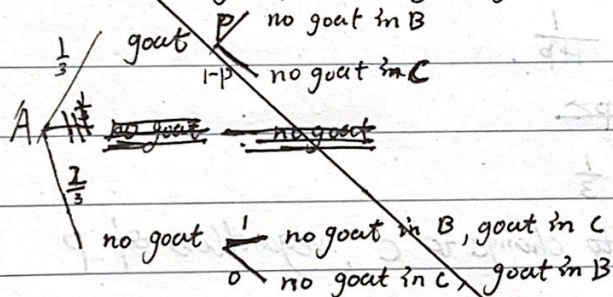 P no goat in B
1/3 goat
1-P no goat in C
A 1/3 no goat no goat
2/3
no goat 1 no goat in B, goat in C
0 no goat in C, goat in B